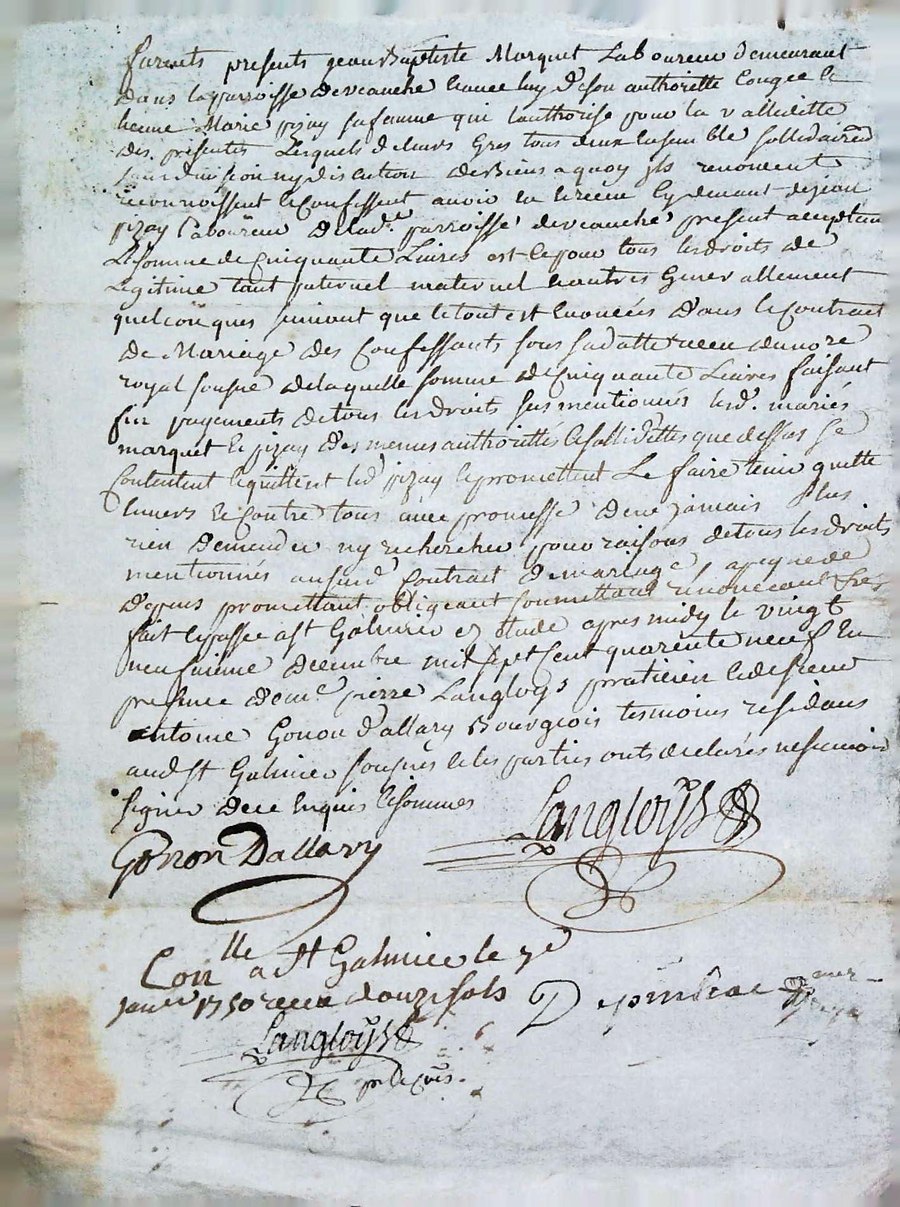 furents presents jean Baptiste Marquet Laboureur demeurant
dans la parroisse deveauche lequel luy de son authoritté Congee et
Marie pizay sa famme qui l'authorise pour la valliditte
des presentes Lesquels de leurs Gres tous deux ensemble sollidairemt
sans division ny discution de Biens a quoy jls renoncent
reconnoissent et Confessent avoir eu et receu cy devant de jean
pizay Laboureur de lade parroisse deveauche present acceptant
La somme de Cinquante Livres est ce pour tous les droits de
Legitime tant paternel maternel et autres Generallement
quelconques suivant que le tout est enoncées dans le Contract
de Mariage des Confessants sous sa datte receu du nore
royal sousné de laquelle somme de Cinquante Livres faisant
fin payements de tous les droits sus mentionnés lesd. mariés
marquet et pizay des memes authorittés et sollidittés que dessus se
Contentent et quittent led pizay et promettent Le faire tenir quitte
Envers et Contre tous avec promesse de ne jamais plus
rien demander ny rechercher pour raisons de tous les droits
mentionnés aususd Contrat de mariage, a peyne de
depens promettant obligeant soumettant renonceant &c
fait et passee a st Galmier ez étude apres midy le vingt
neufuieme decembre mil sept Cent quarente neuf En
presence de me pierre Langloys praticien et de sieur
antoine Gonon d'allary Bourgeois tesmoins residans
aud st Galmier sousnes et les parties onts declarés ne scavoir
signer de ce Enquis et sommes
Gonon Dallary Langloys
Conlle a st Galmier le 7e
janvier 1750 receu douze sols
Langloys